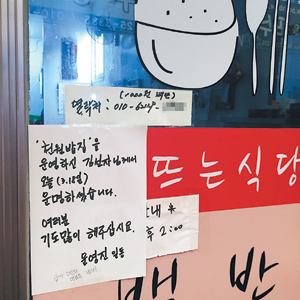 (1000원 백반)
연락처: 010-6219-
'천원밥집'을
운영하신 김선자님께서
오늘 (3.18일)
운명하셨습니다.
여러분
기도많이 해주십시요.
윤영진 드림
뜨는식당
안내
후 2:00
백반